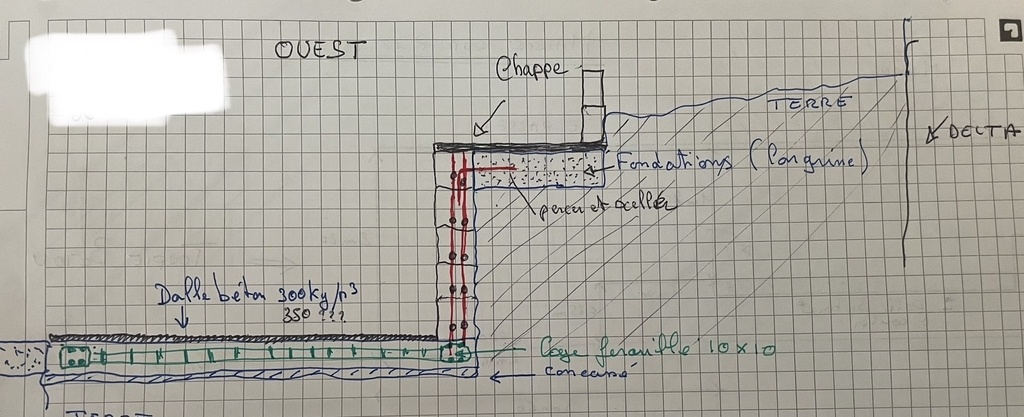 OUEST
Chappe
TERRE
DELTA
Fondations (longrine)
percer et sceller
Dalle béton 300kg/m³
350 ???
Cage feraille 10x10
concassé